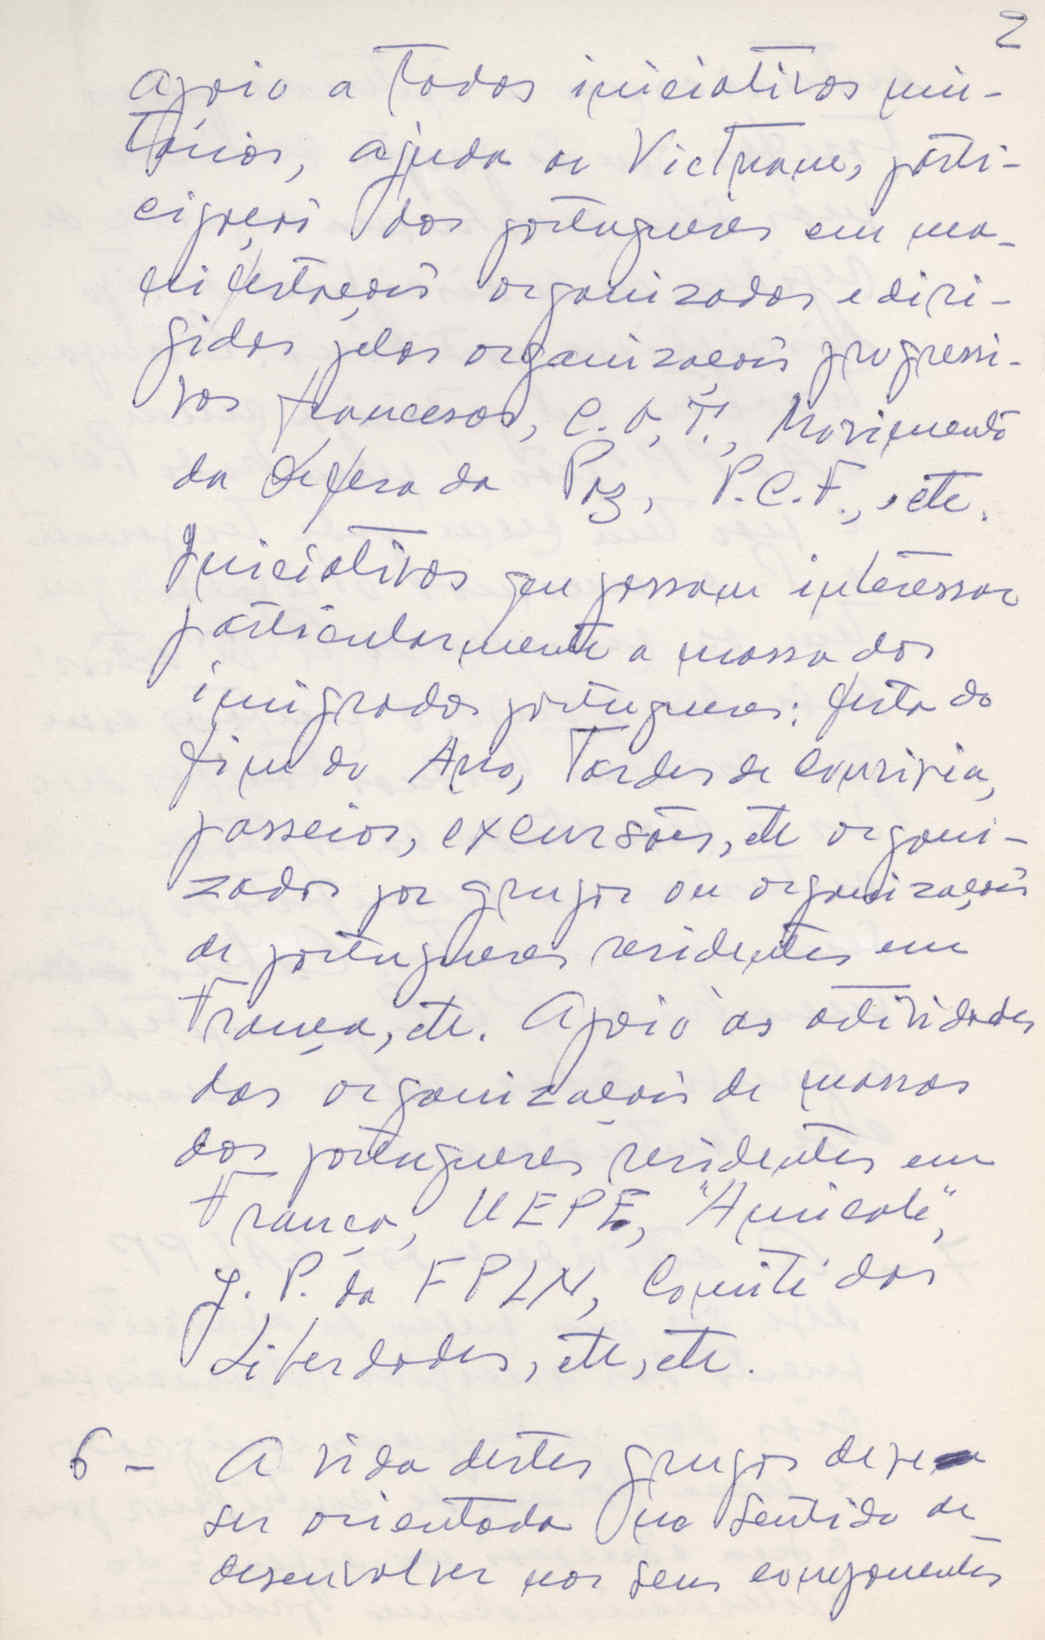 2
apoio a todas iniciativas uni-
tárias, ajuda ao Vietname, parti-
cipação dos portugueses em ma-
nifestações organizadas e diri-
gidas pelas organizações progressi-
vas francesas, C.G.T., Movimento
da defesa da Paz, P.C.F., etc.
Iniciativas que possam interessar
particularmente a massa dos
imigrados portugueses: festa do
fim do Ano, Tardes de convivia,
passeios, excursões, etc organi-
zados por grupos ou organizações
de portugueses residentes em
França, etc. Apoio às atividades
das organizações de massas
dos portugueses residentes em
França, UEPF, "Amicale",
J. P. da FPLN, Comité das
Liberdades, etc, etc.
6 - A vida destes grupos deve
ser orientada no sentido de
desenvolver nos seus componentes